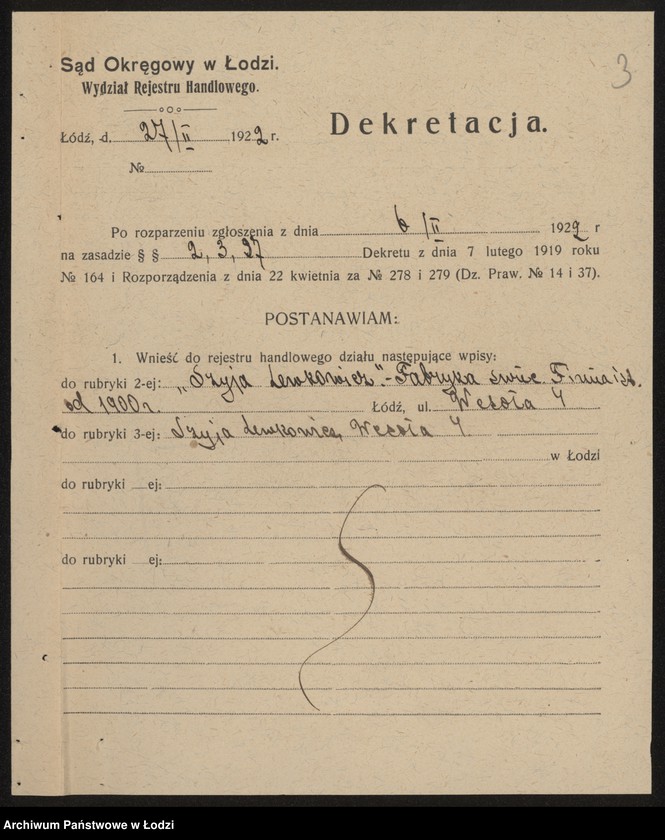 3
Sąd Okręgowy w Łodzi.
Wydział Rejestru Handlowego.
Dekretacja.
Łódź, d. 27/II 1922 r.
№
Po rozparzeniu zgłoszenia z dnia 6/II 1922 r
na zasadzie § § 2, 3, 27 Dekretu z dnia 7 lutego 1919 roku
№ 164 i Rozporządzenia z dnia 22 kwietnia za № 278 i 279 (Dz. Praw. № 14 i 37).
POSTANAWIAM:
1. Wnieść do rejestru handlowego działu następujące wpisy:
do rubryki 2-ej: „Szyja Lewkowicz."- Fabryka świec. Firma ist.
od 1900 r. Łódź, ul. Wesoła 4
do rubryki 3-ej: Szyja Lewkowicz, Wesoła 4
w Łodzi
do rubryki ej:
do rubryki ej:
Archiwum Państwowe w Łodzi